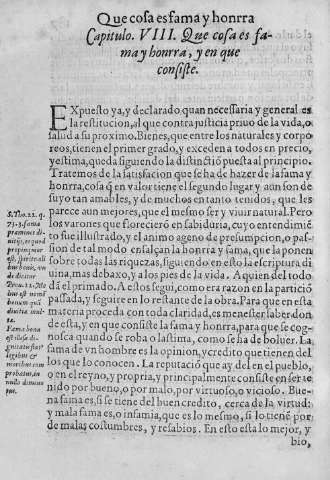 Que cosa es fama y honrra
Capitulo. VIII. Que cosa es fa-
ma y honrra, y en que
consiste.
EXpuesto ya, y declarado, quan necessaria y general es
la restitucion, al que contra justicia priuo de la vida, o
salud a su proximo. Bienes, que entre los naturales y corpo
reos, tienen el primer grado, y exceden a todos en precio,
y estima, queda siguiendo la distinctiõ puesta al principio.
Tratemos de la satisfacion que se ha de hazer de la fama y
honrra, cosa q̃ en valor tiene el segundo lugar y aun son de
suyo tan amables, y de muchos en tanto tenidos, que les
parece aun mejores, que el mesmo ser y viuir natural. Pero
los varones que florecierõ en sabiduria, cuyo entendimiẽ
to fue illustrado, y el animo ageno de presumpcion, o pas
sion de tal modo ensalçan la honrra y fama, que la ponen
sobre todas las riquezas, siguiendo en esto la escriptura di
uina, mas debaxo, y a los pies de la vida. A quien del todo
dã el primado. A estos segui, como era razon en la particiõ
passada, y seguire en lo restante de la obra. Para que en esta
materia proceda con toda claridad, es menester saber don
de esta, y en que consiste la fama y honrra, para que se cog-
nosca quando se roba o lastima, como se ha de boluer. La
fama de vn hombre es la opinion, y credito que tienen del
los que lo conocen. La reputaciõ que ay del en el pueblo,
o en el reyno, y propria, y principalmente consiste en ser te
nido por bueno, o por malo, por virtuoso, o vicioso. Bue-
na fama es, si se tiene del buen credito, cerca de la virtud:
y mala fama es, o infamia, que es lo mesmo, si lo tienẽ por
de malas costumbres, y resabios. En esto esta lo mejor, y
bio,
S. Tho. 22. q.
73. 3. fama
preeminet di-
uitijs, eo quod
propinquior
est, spirituali
bus bonis, vn
de dicitur
Prou. 22. Me
lius est nomẽ
bonum quã
diuitiæ mul-
tæ.
Fama bona
est illesæ di-
gnitatis status
legibus &
moribus com
probatus, in
nullo diminu
tus.